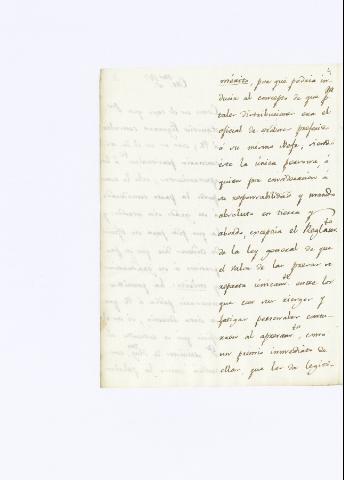 mérito, por que podria in-
ducir al concepto de que pa
tales distribuciones era el
oficial de ordenes preferido
á su mismo Gefe, siendo
éste la única persona á
quien por consideracion á
su responsabilidad y mando
absoluto en tierra y
abordo, exceptúa el Reglamto
de la ley general de que
el valor de las presas se
reparta únicamte entre los
que con sus riesgos y
fatigas personales contri-
buyen al apresamto, como
un premio inmediato de
ellas, que les da legiti-